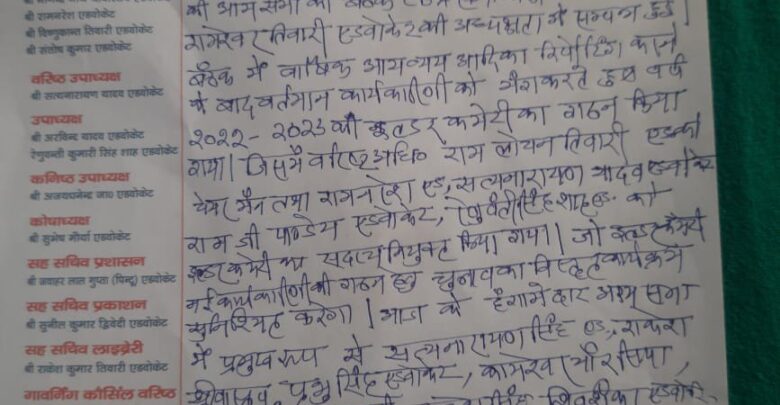 श्री रामनरेश एडवोकेट
श्री विष्णुकान्त तिवारी एडवोकेट
श्री संतोष कुमार एडवोकेट
वरिष्ठ उपाध्यक्ष
श्री सत्यनारायण यादव एडवोकेट
उपाध्यक्ष
श्री अरविन्द यादव एडवोकेट
रेणुवन्ती कुमारी सिंह शाह एडवोकेट
कनिष्ठ उपाध्यक्ष
श्री अजयघनेन्द्र जा० एडवोकेट
कोषाध्यक्ष
श्री सुमेष मौर्या एडवोकेट
सह सचिव प्रशासन
श्री जवाहर लाल गुप्ता (पिन्टू) एडवोकेट
सह सचिव प्रकाशन
श्री सुनील कुमार द्विवेदी एडवोकेट
सह सचिव लाइब्रेरी
श्री राकेश कुमार तिवारी एडवोकेट
गावर्निंग कौंसिल वरिष्ठ
की आम सभा की बैठक
रामेश्वर तिवारी एडवोकेट की अध्यक्षता में सम्पन्न हुई|
बैठक में वार्षिक आयव्यय आदि का रिपोर्टिंग करने
के बाद वर्तमान कार्यकारिणी को भंग करते हुए वर्ष
२०२२-२०२३ की एल्डर कमेटी का गठन किया
गया| जिसमें वरिष्ठ अधि० राम लोचन तिवारी एडवो
चेयरमैन तथा रामनरेश एड, सत्यनारायण यादव एडवोकेट
राम जी पाण्डेय एडवोकेट, सिंह शाह एड. को
एल्डर कमेटी का सदस्य नियुक्त किया गया| जो एल्डर कमेटी
नई कार्यकारिणी की गठन हेतु चुनाव का विस्तृत कार्यक्रम
सुनिश्चित करेगा| आज के हंगामेदार आम सभा
में प्रमुख रूप से सत्यनारायण सिंह एड., राकेश
श्रीवास्तव, प्रभु सिंह एडवोकेट, कामेश्वर चौरसिया,